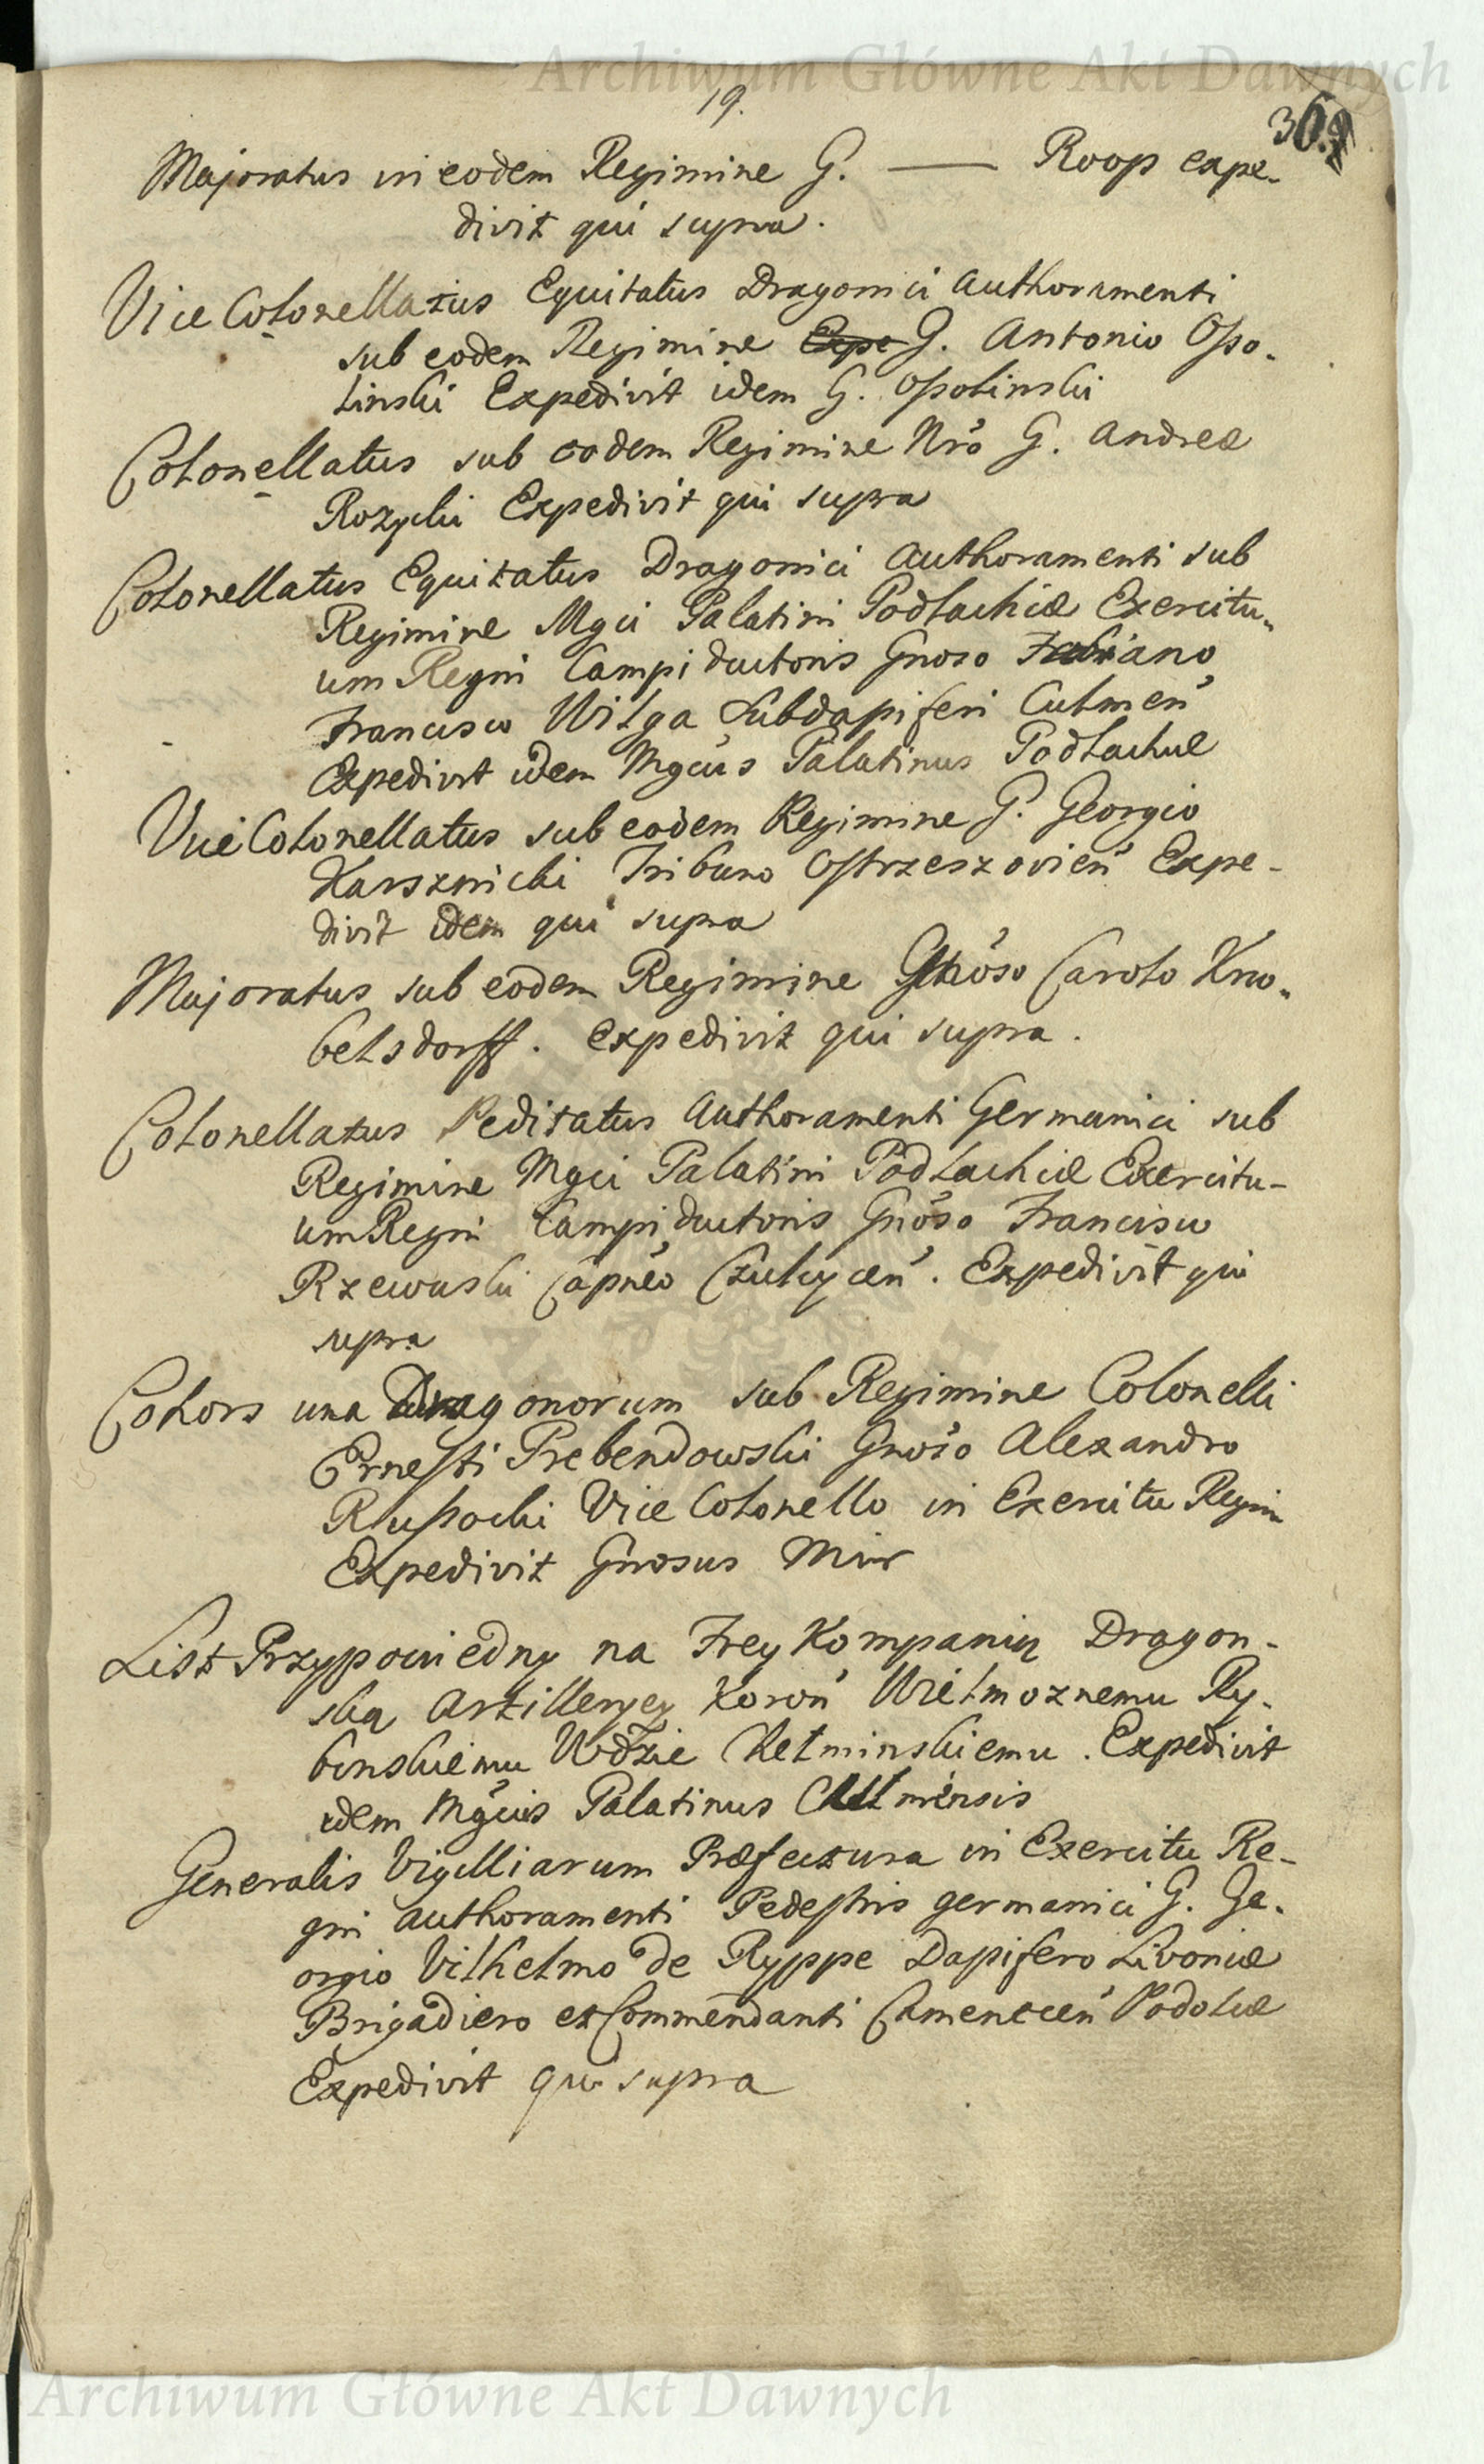 Archiwum Główne Akt Dawnych
19.
Majoratus in eodem Regimine G. —— Roop expe-
divit qui supra.
Vice Colonellatus Equitatus Dragonici Authoramenti
sub eodem Regimine Expe G. Antonio Osso-
linski Expedivit idem G. Ossolinski
Colonellatus sub eodem Regimine Nro G. Andreæ
Rozycki Expedivit qui supra
Colonellatus Equitatus Dragonici Authoramenti sub
Regimine Mgci Palatini Podlachiæ Exercitu-
um Regni Campi ductoris Gnoso Fabiano
Francisco Wilga Subdapiferi Culmen
Expedivit idem Mgcus Palatinus Podlachiæ
Vice Colonellatus sub eodem Regimine G. Georgio
Karsznicki Tribuno Ostrzeszovien Expe-
divit idem qui supra
Majoratus sub eodem Regimine Gnoso Carolo Kno-
belsdorff. Expedivit qui supra.
Colonellatus Peditatus Authoramenti Germanici sub
Regimine Mgci Palatini Podlachiæ Exercitu-
um Regni Campi ductoris Gnoso Francisco
Rzewuski Capneo Czulycen. Expedivit qui
supra
Cohors una Dragonorum sub Regimine Colonelli
Ernesti Prebendowski Gnoso Alexandro
Vice Colonello in Exercitu Regni
Expedivit Gnosus Mier
List Przypowiedny na Frey Kompanią Dragon-
ską Artilleryey Koron Wielmoznemu Ry-
binskiemu Wdzie Chelminskiemu. Expedivit
idem Mgcus Palatinus Culmensis
Generalis Vigilliarum Præfectura in Exercitu Re-
gni Authoramenti Pedestris germanici G. Ge-
orgio Vilhelmo de Ryppe Dapifero Livoniæ
Brigadiero et Commendanti Camenecen Podoliæ
Expedivit qui supra
Archiwum Główne Akt Dawnych